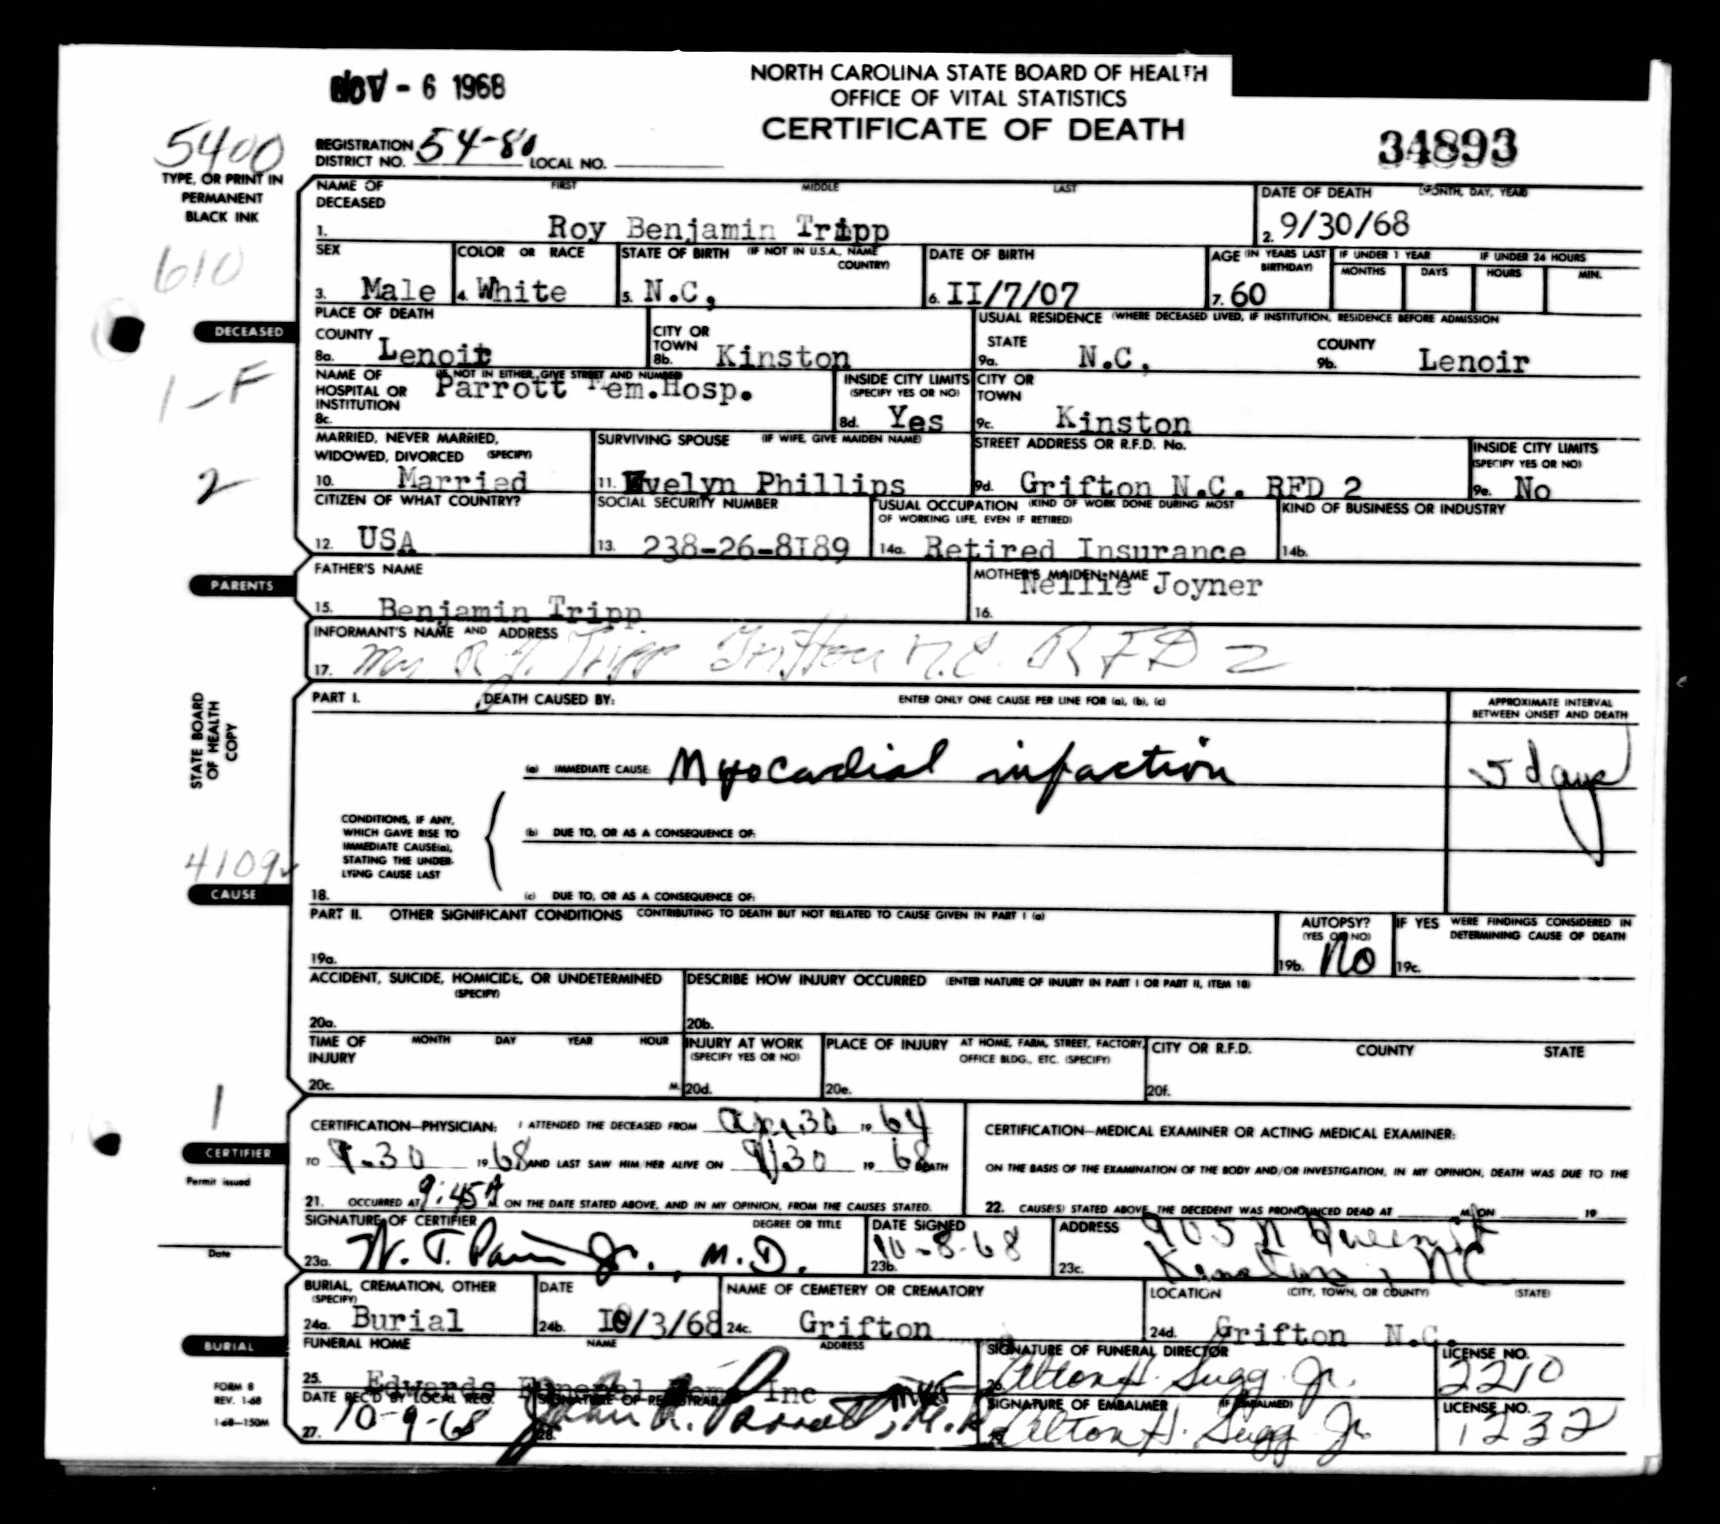 NOV - 6 1968
NORTH CAROLINA STATE BOARD OF HEALTH
OFFICE OF VITAL STATISTICS
CERTIFICATE OF DEATH
34893
5400
REGISTRATION DISTRICT NO. 54-80 LOCAL NO.
TYPE, OR PRINT IN
PERMANENT
BLACK INK
610
DECEASED
1-F
2
NAME OF DECEASED FIRST MIDDLE LAST
1. Roy Benjamin Tripp
DATE OF DEATH (MONTH, DAY, YEAR)
2. 9/30/68
SEX
3. Male
COLOR OR RACE
4. White
STATE OF BIRTH (IF NOT IN U.S.A., NAME COUNTRY)
5. N.C,
DATE OF BIRTH
6. II/7/07
AGE (IN YEARS LAST BIRTHDAY)
7. 60
IF UNDER 1 YEAR
MONTHS DAYS
IF UNDER 24 HOURS
HOURS MIN.
PLACE OF DEATH
COUNTY
8a. Lenoir
CITY OR TOWN
8b. Kinston
USUAL RESIDENCE (WHERE DECEASED LIVED, IF INSTITUTION, RESIDENCE BEFORE ADMISSION
STATE
9a. N.C,
COUNTY
9b. Lenoir
NAME OF HOSPITAL OR INSTITUTION (IF NOT IN EITHER, GIVE STREET AND NUMBER)
8c. Parrott Mem.Hosp.
INSIDE CITY LIMITS (SPECIFY YES OR NO)
8d. Yes
CITY OR TOWN
9c. Kinston
MARRIED, NEVER MARRIED, WIDOWED, DIVORCED (SPECIFY)
10. Married
SURVIVING SPOUSE (IF WIFE, GIVE MAIDEN NAME)
11. Evelyn Phillips
STREET ADDRESS OR R.F.D. No.
9d. Grifton N.C. RFD 2
INSIDE CITY LIMITS (SPECIFY YES OR NO)
9e. No
CITIZEN OF WHAT COUNTRY?
12. USA
SOCIAL SECURITY NUMBER
13. 238-26-8I89
USUAL OCCUPATION (KIND OF WORK DONE DURING MOST OF WORKING LIFE, EVEN IF RETIRED)
14a. Retired Insurance
KIND OF BUSINESS OR INDUSTRY
14b.
PARENTS
FATHER'S NAME
15. Benjamin Tripp
MOTHER'S MAIDEN NAME
16. Nellie Joyner
INFORMANT'S NAME AND ADDRESS
17. Tripp Grifton N.C. RFD 2
STATE BOARD
OF HEALTH
COPY
PART I. DEATH CAUSED BY: ENTER ONLY ONE CAUSE PER LINE FOR (a), (b), (c)
APPROXIMATE INTERVAL
BETWEEN ONSET AND DEATH
(a) IMMEDIATE CAUSE: Myocardial infaction 5 days
CONDITIONS, IF ANY,
WHICH GAVE RISE TO
IMMEDIATE CAUSE(a),
STATING THE UNDER-
LYING CAUSE LAST
(b) DUE TO, OR AS A CONSEQUENCE OF:
4109
CAUSE
18. (c) DUE TO, OR AS A CONSEQUENCE OF:
PART II. OTHER SIGNIFICANT CONDITIONS CONTRIBUTING TO DEATH BUT NOT RELATED TO CAUSE GIVEN IN PART I (a)
19a.
AUTOPSY? (YES OR NO)
19b. No
IF YES WERE FINDINGS CONSIDERED IN DETERMINING CAUSE OF DEATH
19c.
ACCIDENT, SUICIDE, HOMICIDE, OR UNDETERMINED (SPECIFY)
20a.
DESCRIBE HOW INJURY OCCURRED (ENTER NATURE OF INJURY IN PART I OR PART II, ITEM 18)
20b.
TIME OF INJURY MONTH DAY YEAR HOUR
20c. M.
INJURY AT WORK (SPECIFY YES OR NO)
20d.
PLACE OF INJURY AT HOME, FARM, STREET, FACTORY, OFFICE BLDG., ETC. (SPECIFY)
20e.
CITY OR R.F.D. COUNTY STATE
20f.
1
CERTIFIER
Permit issued
Date
CERTIFICATION—PHYSICIAN: I ATTENDED THE DECEASED FROM Apr. 30 19 64
TO 9-30 19 68 AND LAST SAW HIM/HER ALIVE ON 9/30 19 68 DEATH
21. OCCURRED AT 9:45A M. ON THE DATE STATED ABOVE, AND IN MY OPINION, FROM THE CAUSES STATED.
CERTIFICATION—MEDICAL EXAMINER OR ACTING MEDICAL EXAMINER:
ON THE BASIS OF THE EXAMINATION OF THE BODY AND/OR INVESTIGATION, IN MY OPINION, DEATH WAS DUE TO THE
22. CAUSE(S) STATED ABOVE, THE DECEDENT WAS PRONOUNCED DEAD AT M. ON 19
SIGNATURE OF CERTIFIER DEGREE OR TITLE
23a. W. T. Jr., M.D.
DATE SIGNED
23b. 10-8-68
ADDRESS
23c. 905 N Queen St
Kinston, NC
BURIAL
BURIAL, CREMATION, OTHER (SPECIFY)
24a. Burial
DATE
24b. I0/3/68
NAME OF CEMETERY OR CREMATORY
24c. Grifton
LOCATION (CITY, TOWN, OR COUNTY) (STATE)
24d. Grifton N.C.
FUNERAL HOME NAME ADDRESS
25. Edwards Funeral Home Inc
SIGNATURE OF FUNERAL DIRECTOR
26. Alton H. Sugg Jr.
LICENSE NO.
2210
DATE REC'D BY LOCAL REG.
27. 10-9-68
SIGNATURE OF REGISTRAR
28. John R. Parrott, M.D.
SIGNATURE OF EMBALMER (IF EMBALMED)
Alton H. Sugg Jr.
LICENSE NO.
1232
FORM 8
REV. 1-68
1-68—150M